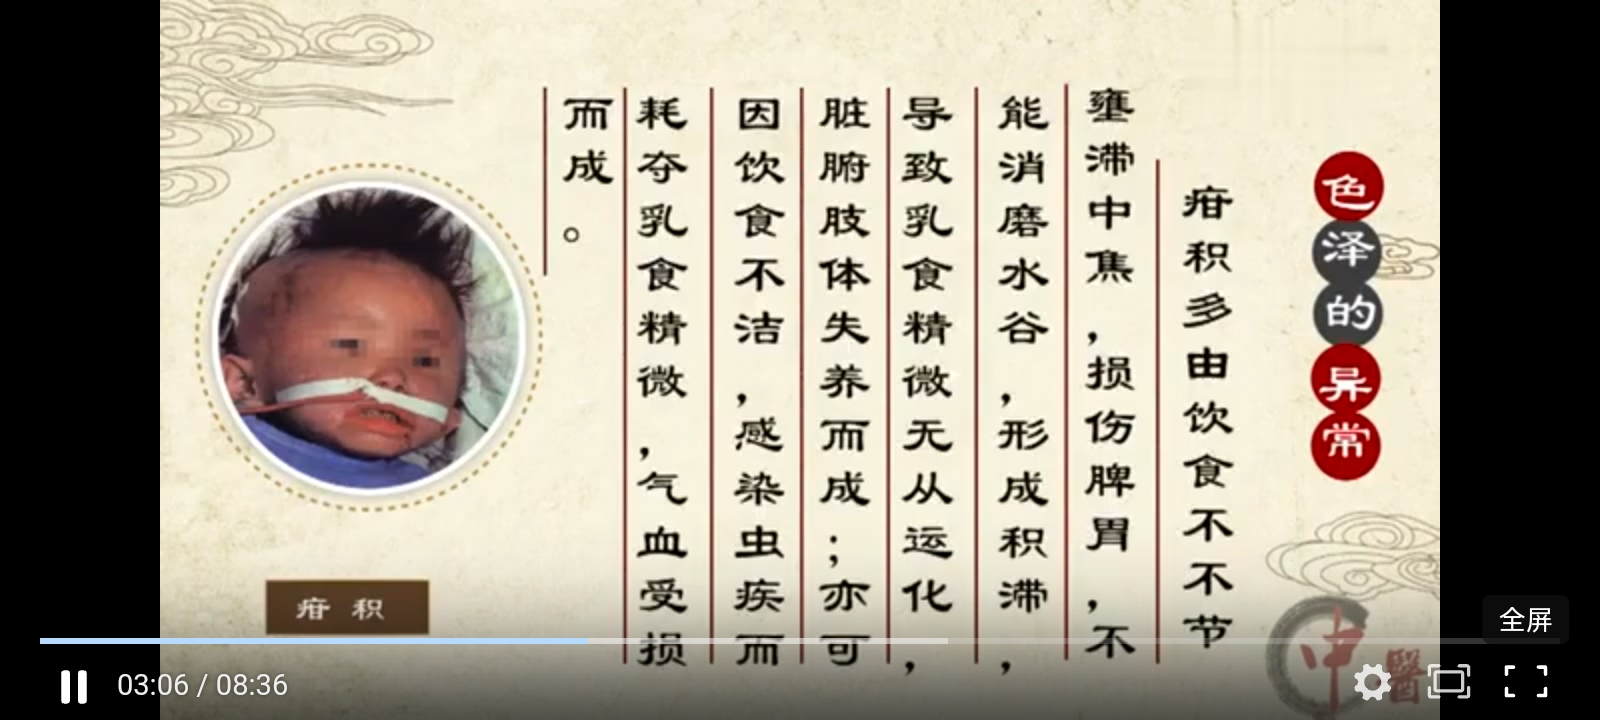 色泽的异常
疳积多由饮食不不节
壅滞中焦，损伤脾胃，不
能消磨水谷，形成积滞，
导致乳食精微无从运化，
脏腑肢体失养而成；亦可
因饮食不洁，感染虫疾而
耗夺乳食精微，气血受损
而成。
疳积
中醫
全屏
03:06 / 08:36